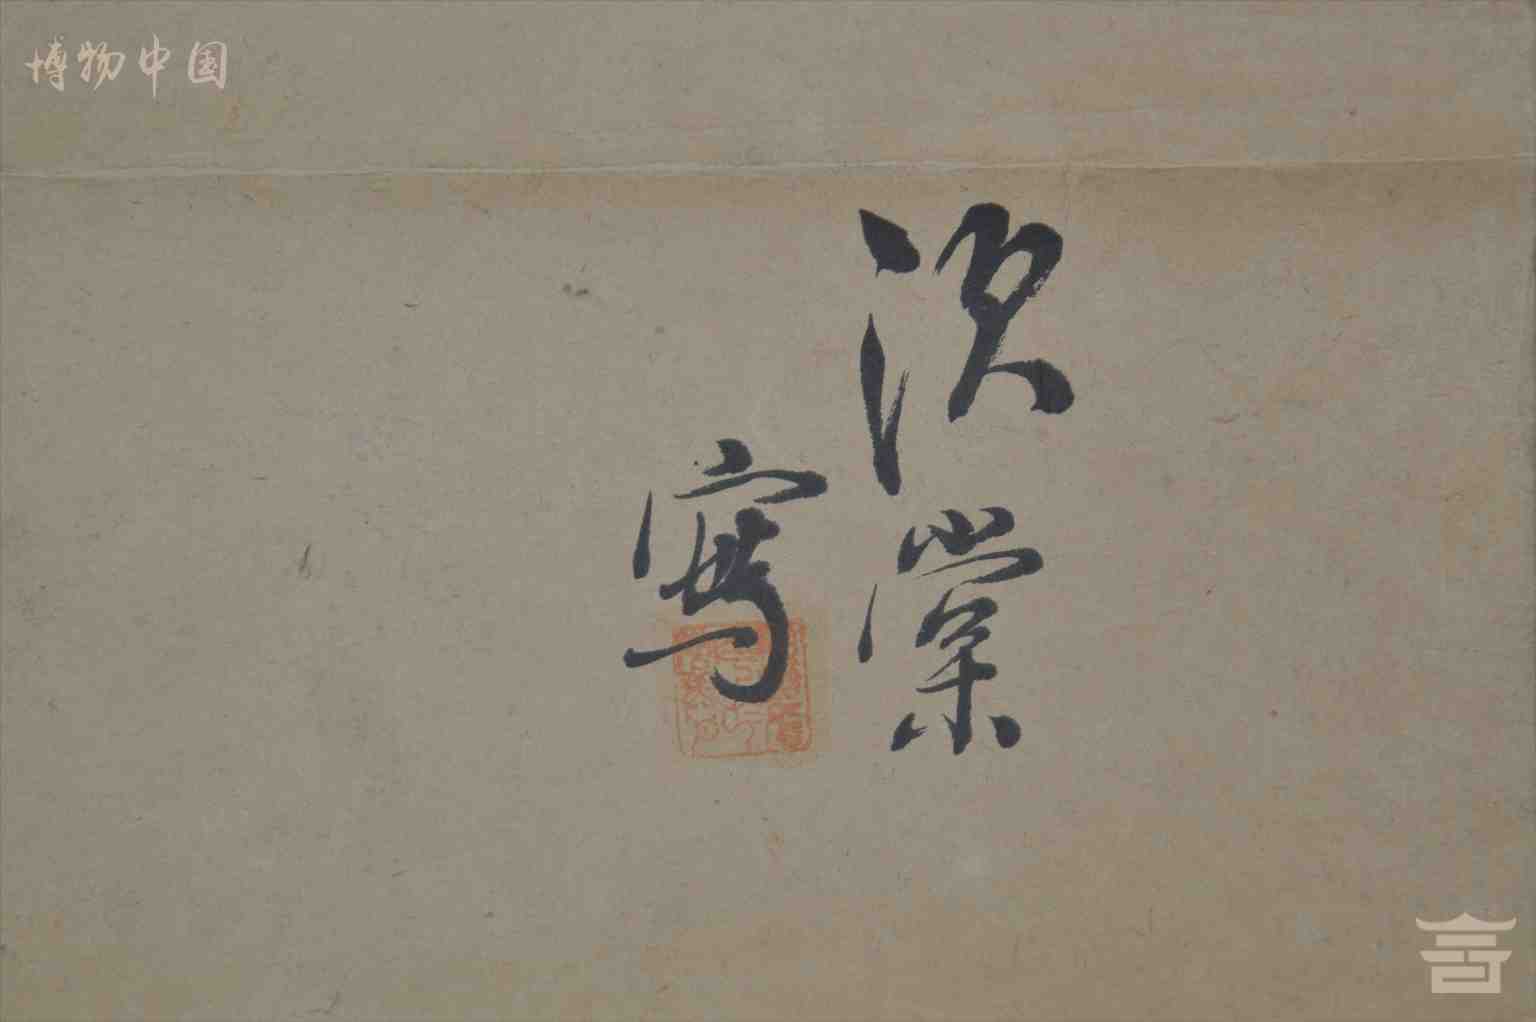 博物中国
次棠
寫